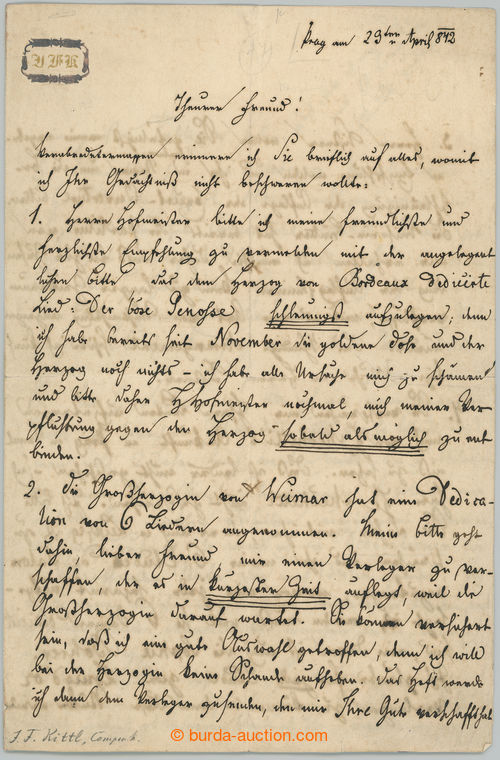 J F K
Prag am 23ten April 842
Theurer Freund!
Verabredetermassen erinnere ich Sie brieflich auf alles, womit
ich Ihr Gedächtniß nicht beschweren wollte:
1. Herrn Hofmeister bitte ich meine freundlichste und
herzlichste Empfehlung zu vermelden mit der angelegent
lichen Bitte das dem Herzog von Bordeaux dedicirte
Lied: Der böse schleunigst aufzulegen; denn
ich habe bereits seit November die goldene Dose und der
Herzog noch nichts – ich habe alle Ursache mich zu schämen
und bitte daher H Hofmeister nochmal, mich meiner Ver
pflichtung gegen den Herzog sobald als möglich zu ent
binden.
2. Die Großherzogin von Weimar hat eine Dedica-
tion von 6 Liedern angenommen. Meine Bitte geht
dahin lieber Freund mir einen Verleger zu ver-
schaffen, der es in kürzester Zeit auflegt, weil die
Großherzogin darauf wartet. Sie können versichert
sein, daß ich eine gute Auswahl getroffen, denn ich will
bei der Herzogin keine Schande aufheben. Das Heft werde
ich dann dem Verleger zusenden, den mir Ihre Güte verschafft hat
J. F. Kittl, Componist.
© burda-auction.com